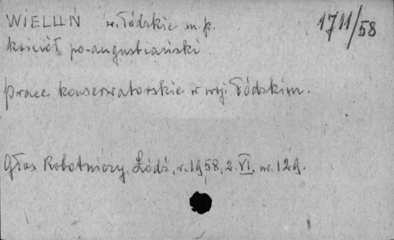 WIELUŃ w. łódzkie m. p. 1711/58
kościół po-augustiański
prace konserwatorskie w woj. łódzkim.
Głos Robotniczy, Łódź, r. 1958, 2. VI, nr. 129.